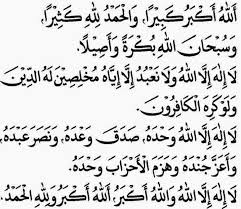 اَللهُ اَكْبَرُ كَبِيْرًا، وَالْحَمْدُ لِلّٰهِ كَثِيْرًا،
وَسُبْحَانَ اللهِ بُكْرَةً وَاَصِيْلًا.
لَا اِلٰهَ اِلَّا اللهُ وَلَا نَعْبُدُ اِلَّا اِيَّاهُ مُخْلِصِيْنَ لَهُ الدِّيْنَ
وَلَوْكَرِهَ الْكَافِرُوْنَ.
لَا اِلٰهَ اِلَّا اللهُ وَحْدَهُ، صَدَقَ وَعْدَهُ، وَنَصَرَ عَبْدَهُ
وَاَعَزَّجُنْدَهُ وَهَزَمَ الْاَحْزَابَ وَحْدَهُ.
لَا اِلٰهَ اِلَّا اللهُ وَاللهُ اَكْبَرُ، اَللهُ اَكْبَرُ وَلِلّٰهِ الْحَمْدُ.